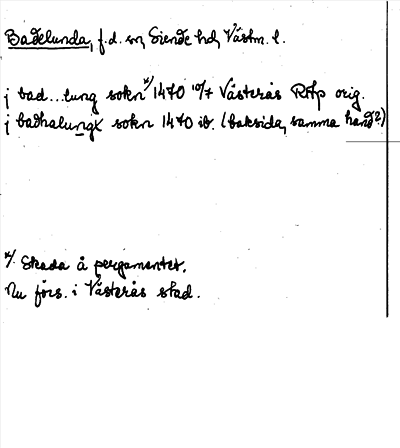 Badelunda, f.d. sn, Siende hd, Västm. l.
j bad...lung sokn x/ 1470 10/7 Västerås RAp orig.
j badhalungx sokn 1470 ib. (baksida, samma hand?)
x/. Skada å pergamentet.
Nu förs. i Västerås stad.